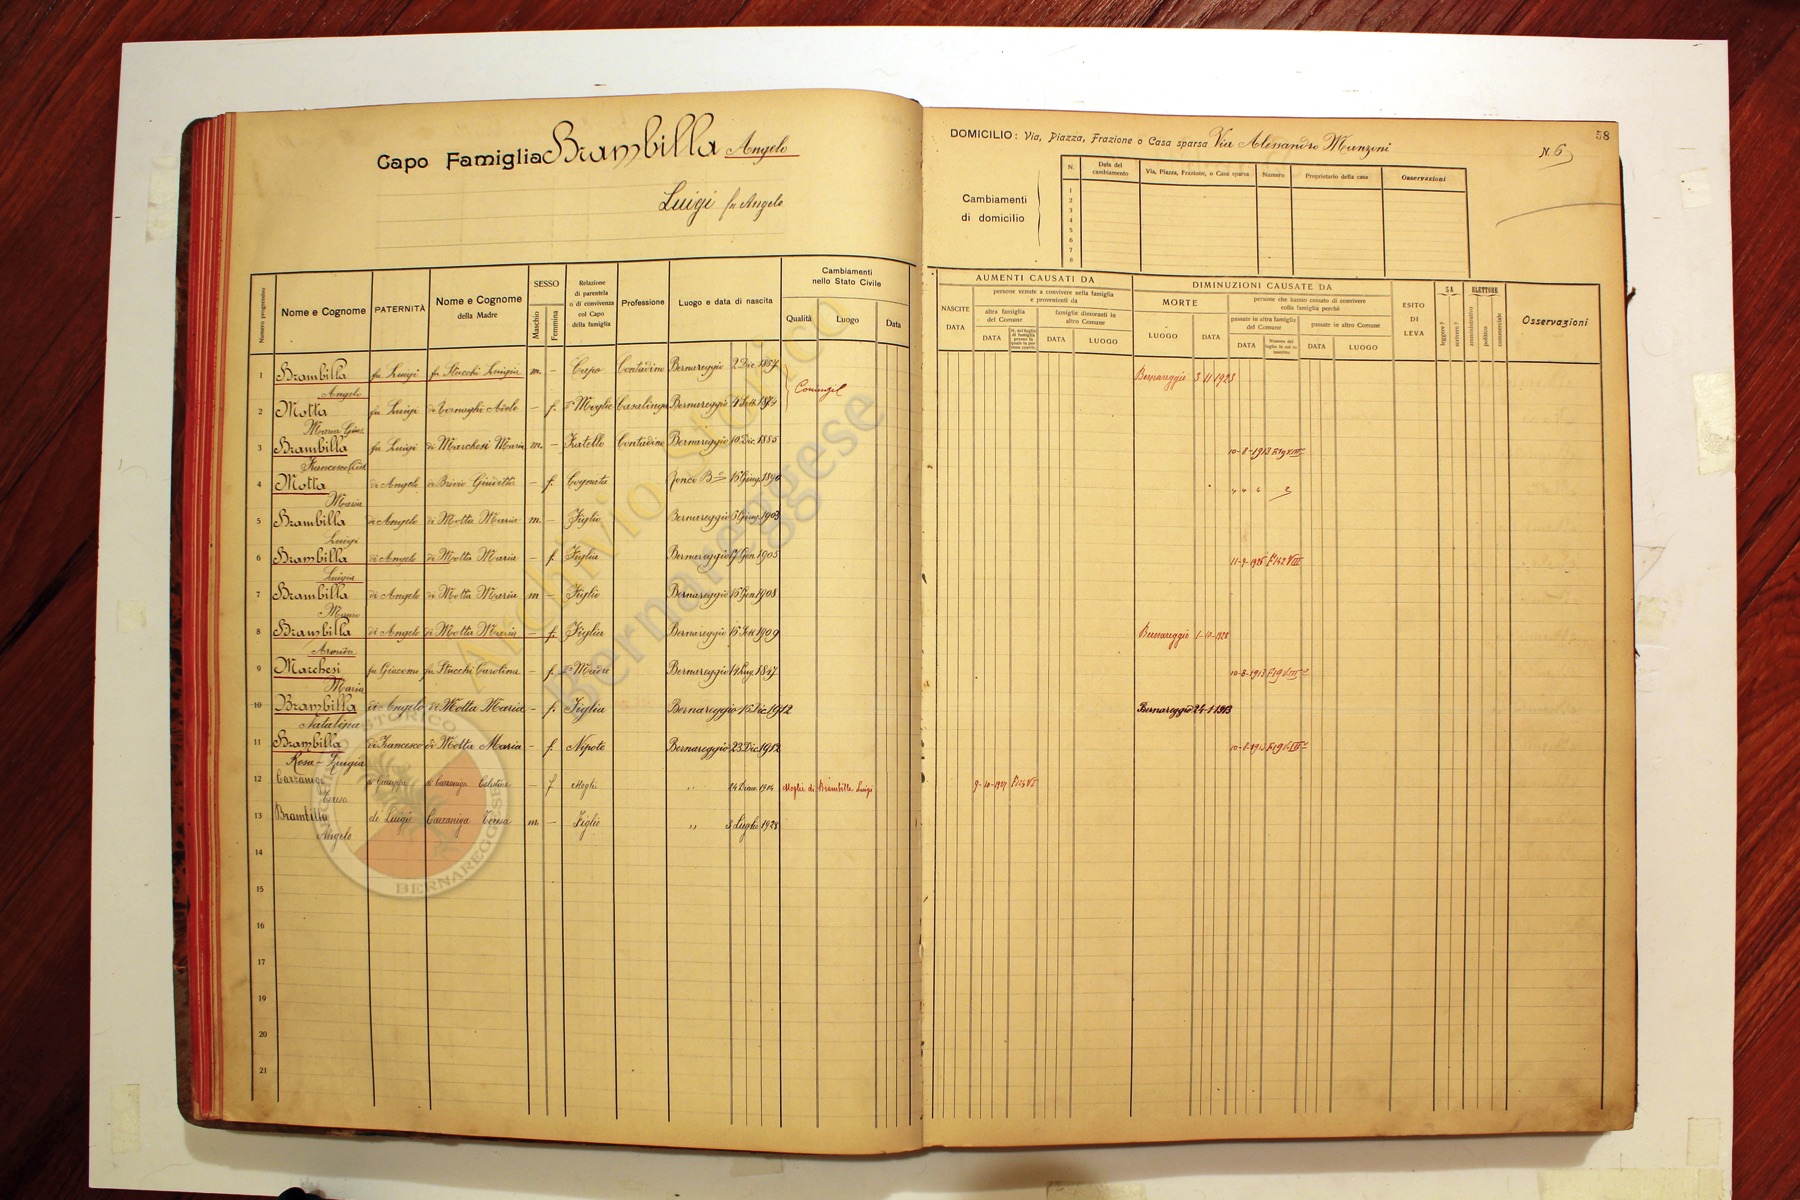 Capo Famiglia Brambilla Angelo
Luigi fu Angelo
DOMICILIO: Via, Piazza, Frazione o Casa sparsa Via Alessandro Manzoni
N. 6
58
Cambiamenti di domicilio
N. Data del cambiamento Via, Piazza, Frazione, o Casa sparsa Numero Proprietario della casa Osservazioni
1
2
3
4
5
6
7
8
Numero progressivo Nome e Cognome PATERNITÀ Nome e Cognome della Madre SESSO Maschio Femmina Relazione di parentela o di convivenza col Capo della famiglia Professione Luogo e data di nascita Cambiamenti nello Stato Civile Qualità Luogo Data
AUMENTI CAUSATI DA
NASCITE DATA
persone venute a convivere nella famiglia e provenienti da
altra famiglia del Comune DATA
famiglie dimoranti in altro Comune DATA LUOGO
DIMINUZIONI CAUSATE DA
MORTE LUOGO DATA
persone che hanno cessato di convivere colla famiglia perchè
passate in altra famiglia del Comune DATA
passate in altro Comune DATA LUOGO
ESITO DI LEVA
SA leggere? scrivere?
ELETTORE amministrativo politico commerciale
Osservazioni
1 Brambilla Angelo fu Luigi fu Stucchi Luigia m. – Capo Contadino Bernareggio 2 Dic. 1867 Coniugi Bernareggio 3 11 1923
2 Motta Maria fu Luigi di Bernaghi Adele – f. Moglie Casalinga Bernareggio
3 Brambilla Francesco fu Luigi di Marchesi Maria m. – Fratello Contadino Bernareggio 10 Dic. 1885 10-8-1913
4 Motta Maria di Angelo di Brivio Giuditta – f. Cognata 1890
5 Brambilla Luigi di Angelo di Motta Maria m. – Figlio Bernareggio 1903
6 Brambilla Luigia di Angelo di Motta Maria – f. Figlia Bernareggio 17 Gen. 1905 11-9-1926 F° 142 VIII
7 Brambilla di Angelo di Motta Maria m – Figlio Bernareggio 15 Gen 1908
8 Brambilla di Angelo di Motta Maria – f. Figlia Bernareggio 1909 Bernareggio 1-10-1928
9 Marchesi Maria fu Giacomo fu Stucchi Carolina – f. Madre Bernareggio 1847 10-8-1913
10 Brambilla Natalina di Angelo di Motta Maria – f. Figlia Bernareggio 15 Dic. 1912 Bernareggio 24-1-1913
11 Brambilla Rosa - Luigia di Francesco di Motta Maria – f. Nipote Bernareggio 23 Dic. 1912 10-8-1913
12 Carzaniga Teresa di Carzaniga Celestina – f Moglie „ 1904 Moglie di Brambilla Luigi 9-10-1927
13 Brambilla Angelo di Luigi Carzaniga Teresa m. – Figlio „ 3 Luglio 1928
14
15
16
17
18
19
20
21
Archivio Storico
Bernareggese